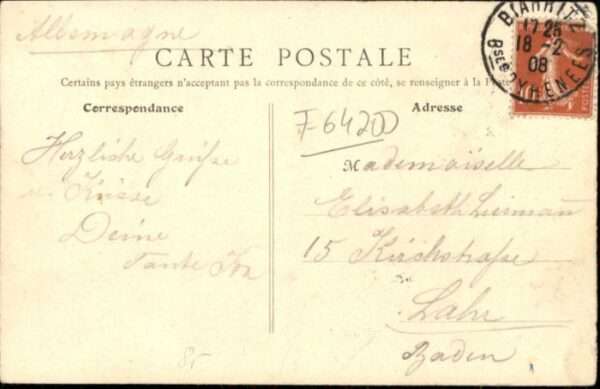 Allemagne
CARTE POSTALE
Certains pays étrangers n'acceptent pas la correspondance de ce côté, se renseigner à la Poste
Correspondance
Adresse
F-64200
Herzliche Grüße
Küsse
Deine
Tante
Mademoiselle
Elisabeth
15 Kirchstraße
Lahr
Baden
BIARRITZ
17 25
18 -2
08
Bses PYRENEES